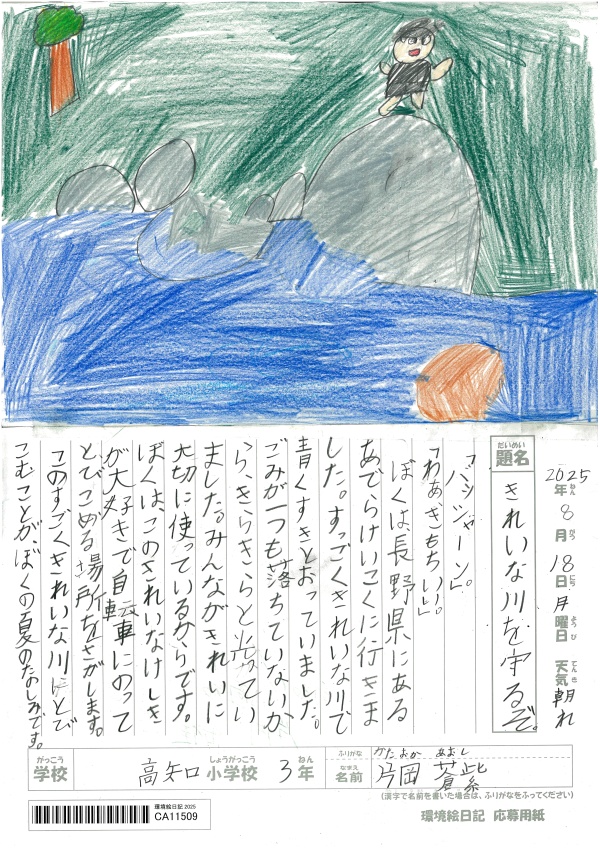 2025年8月18日月曜日 天気 朝れ
ねん がつ にち ようび てんき
だいめい
題名
きれいな川を守るぞ。
「バッシャーン。」
「わぁきもちいい」
ぼくは長野県にある
あでらけいこくに行きま
した。すっごくきれいな川で
青くすきとおっていました。
ごみが一つも落ちていないか
ら、きらきらと光ってい
ました。みんながきれいに
大切に使っているからです。
ぼくは、このきれいなけしき
が大好きで自転車にのって
とびこめる場所をさがします。
このすごくきれいな川にとび
こむことが、ぼくの夏のたのしみです。
がっこう しょうがっこう ねん
学校 高知小学校 3年
ふりがな かたおか あおし
なまえ
名前 片岡 蒼紫
(漢字で名前を書いた場合は、ふりがなをふってください)
環境絵日記 2025
CA11509
環境絵日記 応募用紙